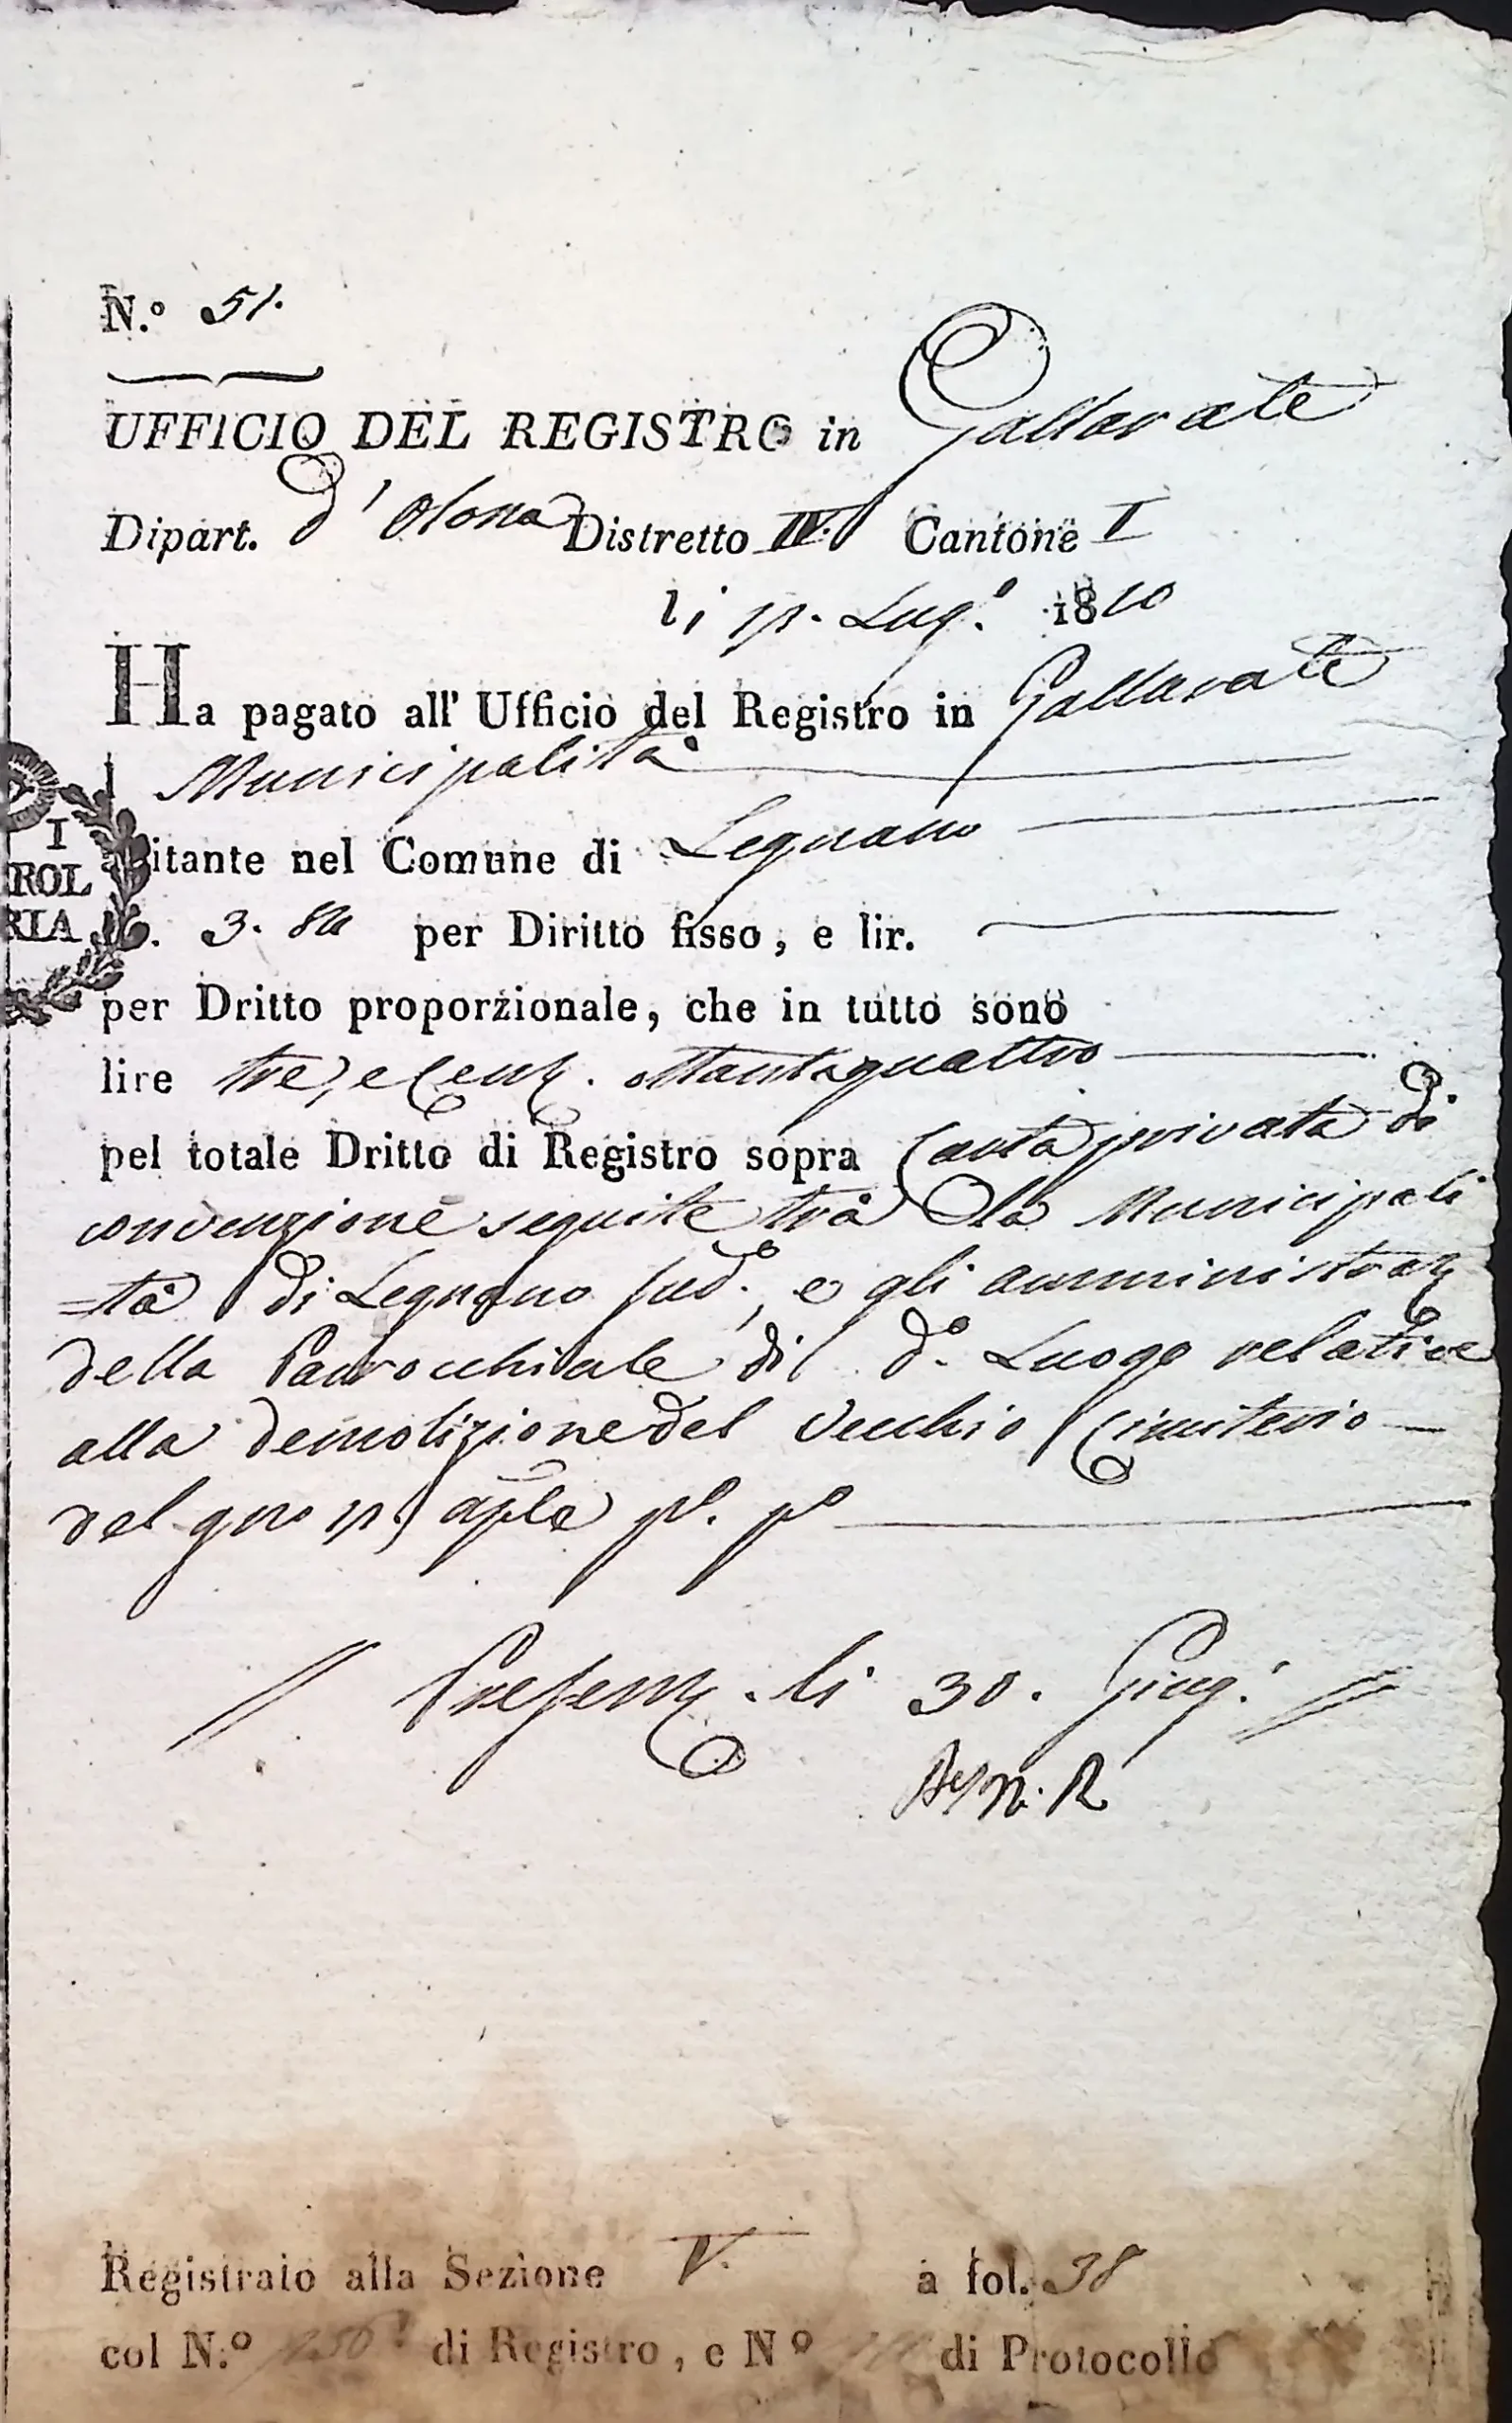 N.º 51.
UFFICIO DEL REGISTRO in Gallarate
Dipart. d'Olona Distretto IV. Cantone I
li Lug.º 1810
Ha pagato all' Ufficio del Registro in Gallarate
Municipalità
abitante nel Comune di Legnano
I
ROL
RIA
3. 84 per Diritto fisso, e lir.
per Dritto proporzionale, che in tutto sono
lire tre, e Cent. ottantaquattro
pel totale Dritto di Registro sopra Carta privata di
convenzione seguite trà la Municipali
=tà di Legnano sud.º, e gli amministrat
della Parrocchiale di d.º Luogo relative
alla demolizione del vecchio Cimiterio
del aple p.º p.º
// Present. li 30. Giug.º //
Registrato alla Sezione V. a fol. 38
col N.º di Registro, e N.º di Protocollo